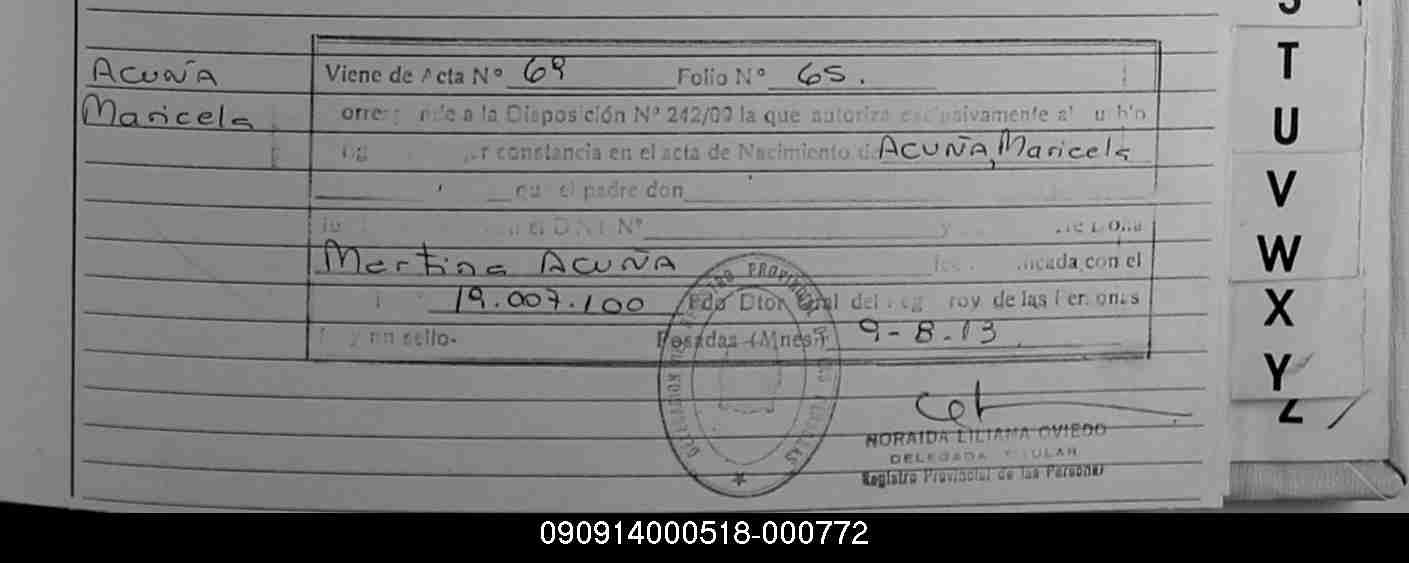 ACUÑA
Maricela
Viene de Acta Nº 69 Folio Nº 65.
a la Disposición Nº 242/09 la que autoriza exclusivamente al
constancia en el acta de Nacimiento de ACUÑA, Maricela
el padre don
el D.N.I. Nº y
Martina ACUÑA con el
19.007.100 Fdo Dtor Gral del Reg Prov de las Personas
sello. Posadas (Mnes) 9-8-13
NORAIDA LILIANA OVIEDO
DELEGADA TITULAR
Registro Provincial de las Personas
T
U
V
W
X
Y
Z
090914000518-000772